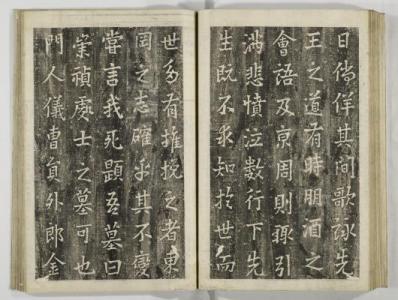 日徜徉其間歌詠先
王之道有時朋酒之
會語及京周則輒引
滿悲憤泣數行下先
生既不求知於世而
世多有推挽之者東
岡之志確乎其不變
嘗言我死題吾墓曰
崇禎處士之墓可也
門人儀曹員外郎金